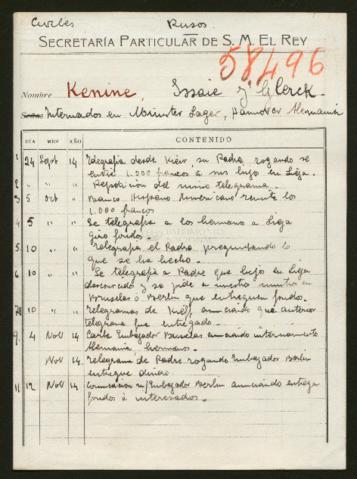 Civiles Rusos
SECRETARÍA PARTICULAR DE S. M. EL REY
58496
Nombre Kenine, Issaie y Glerck.
Internados en Münster Lager, Hannover Alemania
DIA MES AÑO CONTENIDO
1 24 Sept 14 Telegrafia desde Kiev, su Padre, rogando se
envie 1.000 francos a sus hijos en Lieja.
2 " " " Repetición del mismo telegrama.
3 5 oct " Banco Hispano Americano remite los
1.000 francos
4 5 " " Se telegrafia a los hermanos a Lieja
giro fondos.
5 10 " " Telegrafia el Padre preguntando lo
que se ha hecho.
6 10 " " Se telegrafia a Padre que hijos en Lieja
desconocido y se pide a nuestro ministro en
Bruselas o Berlin que entreguen fondos.
10 " " Telegramas de Kieff, anunciando que anterior
telegrama fue entregado.
9 4 Nov 14 Carta Embajador Bruselas anunciando internamiento
Alemania hermanos.
Nov 14 Telegrama de Padre rogando Embajador Berlin
entregue dinero.
11 12 Nov 14 Comunicación Embajador Berlin anunciando entrega
fondos a interesados.